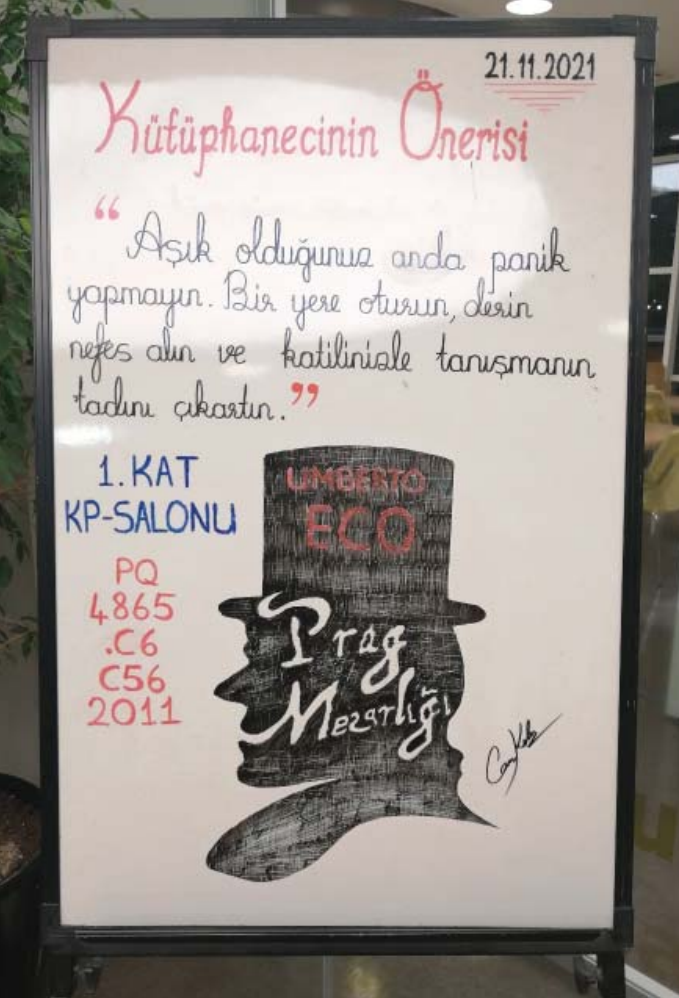 21.11.2021
Kütüphanecinin Önerisi
“Aşık olduğunuz anda panik
yapmayın. Bir yere oturun, derin
nefes alın ve katilinizle tanışmanın
tadını çıkartın.”
1. KAT
KP-SALONU
PQ
4865
.C6
C56
2011
UMBERTO
ECO
Prag
Mezarlığı